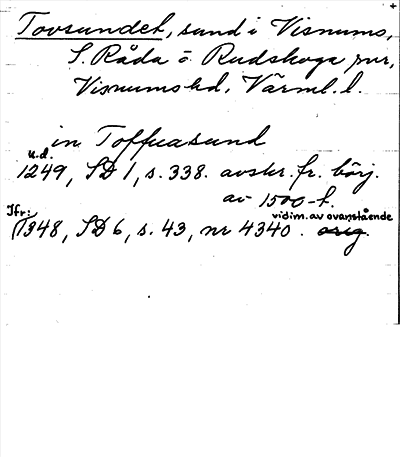 Tovsundet, sund i Visnums,
S. Råda o. Rudskoga snr,
Visnums hd, Värml. l.
in Toffuasund
u.d.
1249, SD 1, s. 338. avskr. fr. börj.
av 1500-t.
Jfr: vidim. av ovanstående
(1348, SD 6, s. 43, nr 4340. orig.